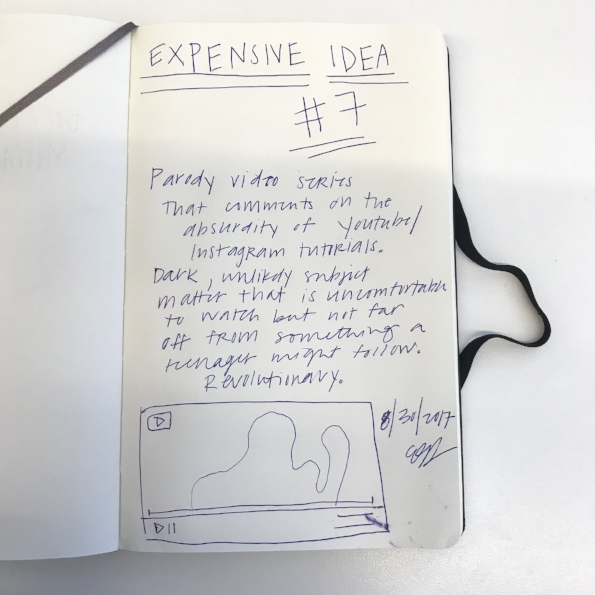 EXPENSIVE IDEA
#7
Parody video series
That comments on the
absurdity of Youtube/
Instagram tutorials.
Dark, unlikely subject
matter that is uncomfortable
to watch but not far
off from something a
teenager might follow.
Revolutionary.
8/30/2017